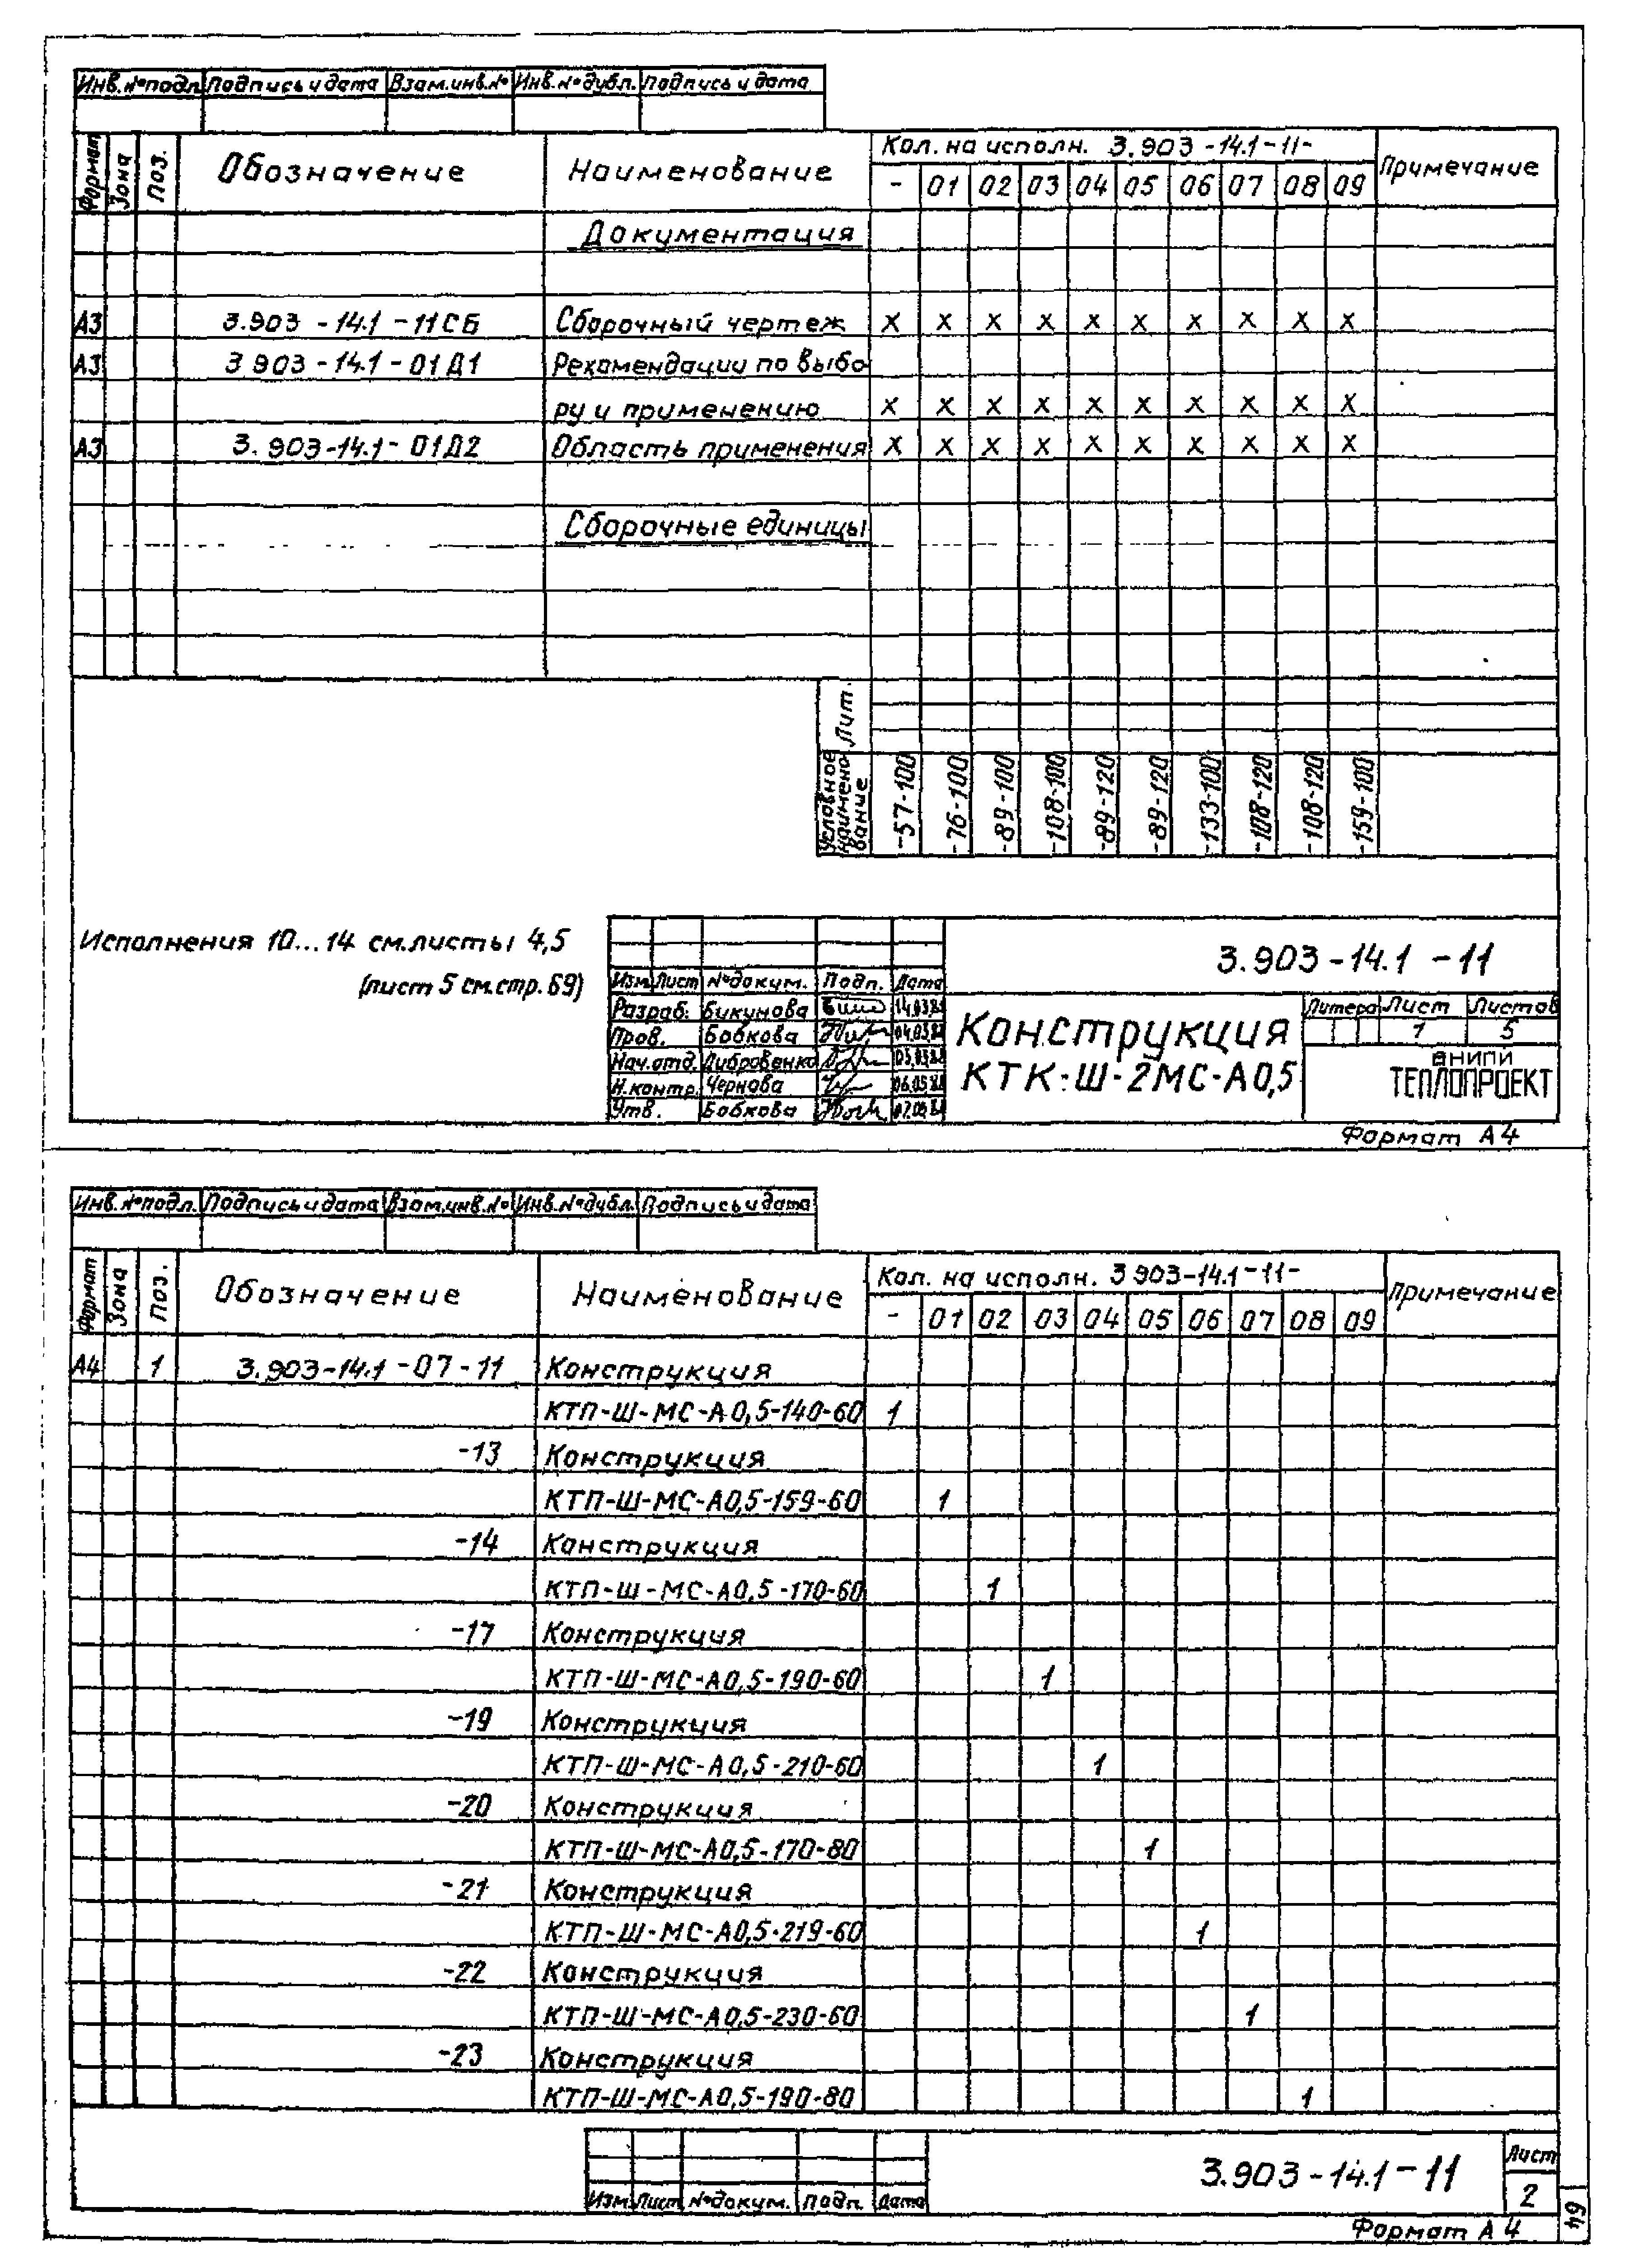 Инв.№подл. Подпись и дата Взам.инв.№ Инв.№дубл. Подпись и дата
Формат Зона Поз. Обозначение Наименование Кол. на исполн. 3.903-14.1-11- Примечание
- 01 02 03 04 05 06 07 08 09
Документация
А3 3.903-14.1-11СБ Сборочный чертеж X X X X X X X X X X
А3 3.903-14.1-01Д1 Рекомендации по выбо
ру и применению X X X X X X X X X X
А3 3.903-14.1-01Д2 Область применения X X X X X X X X X X
Сборочные единицы
Лит.
Условное наименование -57-100 -76-100 -89-100 -108-100 -89-120 -89-120 -133-100 -108-120 -108-120 -159-100
Исполнения 10...14 см.листы 4,5
(лист 5 см.стр.69)
3.903-14.1-11
Изм. Лист №докум. Подп. Дата
Разраб. Бикунова
Пров. Бобкова
Нач.отд.
Н.контр. Чернова
Утв. Бобкова
Конструкция
КТК-Ш-2МС-А0,5
Литера Лист Листов
1 5
ВНИПИ
ТЕПЛОПРОЕКТ
Формат А4
Инв.№подл. Подпись и дата Взам.инв.№ Инв.№дубл. Подпись и дата
Формат Зона Поз. Обозначение Наименование Кол. на исполн. 3.903-14.1-11- Примечание
- 01 02 03 04 05 06 07 08 09
А4 1 3.903-14.1-07-11 Конструкция
КТП-Ш-МС-А0,5-140-60 1
-13 Конструкция
КТП-Ш-МС-А0,5-159-60 1
-14 Конструкция
КТП-Ш-МС-А0,5-170-60 1
-17 Конструкция
КТП-Ш-МС-А0,5-190-60 1
-19 Конструкция
КТП-Ш-МС-А0,5-210-60 1
-20 Конструкция
КТП-Ш-МС-А0,5-170-80 1
-21 Конструкция
КТП-Ш-МС-А0,5-219-60 1
-22 Конструкция
КТП-Ш-МС-А0,5-230-60 1
-23 Конструкция
КТП-Ш-МС-А0,5-190-80 1
3.903-14.1-11
Лист
2
Изм. Лист №докум. Подп. Дата
Формат А4
64